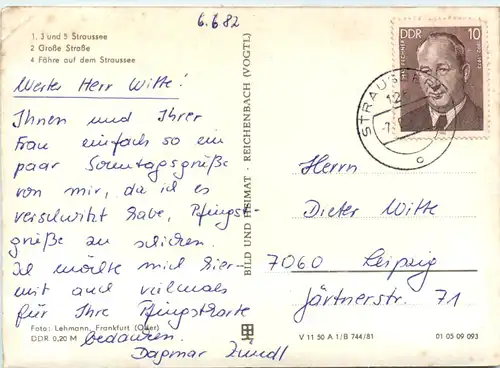 6.6.82
1, 3 und 5 Straussee
2 Große Straße
4 Fähre auf dem Straussee
Werter Herr Witte!
Ihnen und Ihrer
Frau einfach so ein
paar Sonntagsgrüße
von mir, da ich es
verschwitzt habe, Pfingst-
grüße zu schicken.
Ich möchte mich hier-
mit auch vielmals
für Ihre Pfingstkarte
bedanken.
Dagmar Zündl
Foto: Lehmann, Frankfurt (Oder)
DDR 0,20 M
BILD UND HEIMAT · REICHENBACH (VOGTL)
DDR 10
STRAUSBERG
Herrn
Dieter Witte
7060 Leipzig
Gärtnerstr. 71
V 11 50 A 1/B 744/81
01 05 09 093